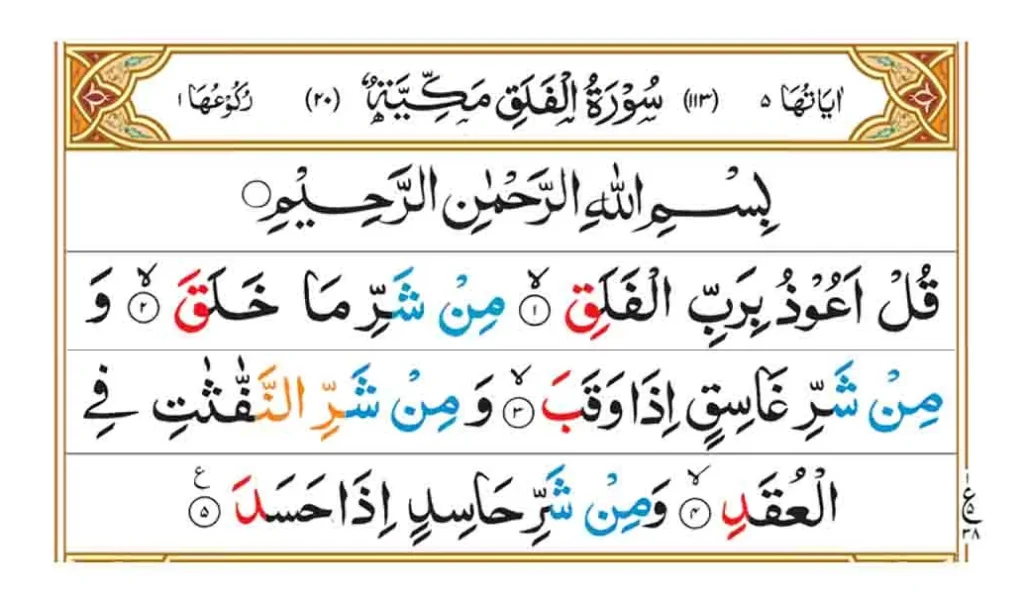 اٰيَاتُهَا ٥ (١١٣) سُوْرَةُ الْفَلَقِ مَكِّيَّةٌ (٢٠) رُكُوْعُهَا ١
بِسْمِ اللّٰهِ الرَّحْمٰنِ الرَّحِيْمِ
قُلْ اَعُوْذُ بِرَبِّ الْفَلَقِ ۙ‏ ١ مِنْ شَرِّ مَا خَلَقَ ۙ‏ ٢ وَ
مِنْ شَرِّ غَاسِقٍ اِذَا وَقَبَ ۙ‏ ٣ وَ مِنْ شَرِّ النَّفّٰثٰتِ فِي
الْعُقَدِ ۙ‏ ٤ وَمِنْ شَرِّ حَاسِدٍ اِذَا حَسَدَ ع ٥
ع ٥ ٣٨